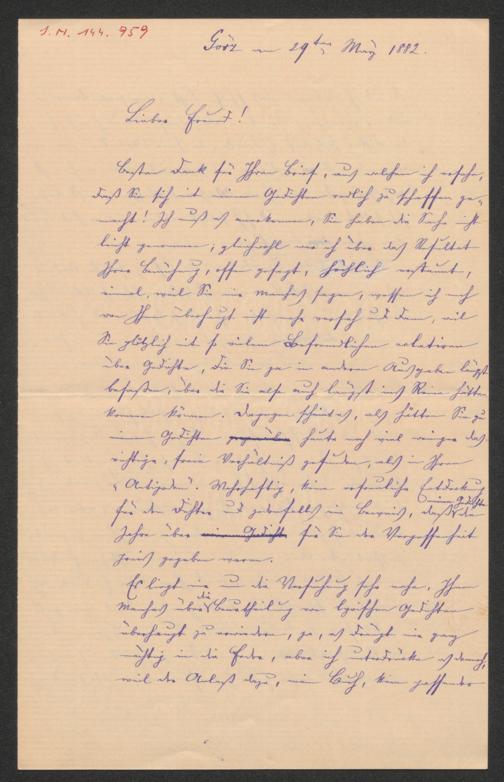 I. N. 144.959
Görz am 29ten May 1882.
Lieber Freund!
Besten Dank für Ihren Brief, aus welchem ich ersehe,
daß Sie sich mit meinen Gedichten redlich zu schaffen ge-
macht! Ich muß es anerkennen, Sie haben die Sache nicht
leicht genommen, gleichwohl war ich über das Resultat
Ihrer Bemühung, offen gesagt, höchlich erstaunt,
einmal, weil Sie mir manches sagen, wessen ich mich
von Ihnen überhaupt nicht mehr versah und dann, weil
Sie plötzlich mit so vielem Befremdlichen
über Gedichte, die Sie ja in anderen Ausgaben längst
besaßen, über die Sie also auch längst ins Reine hätten
kommen können. Dagegen scheint es, als hätten Sie zu
meinen Gedichten heute noch viel weniger das
richtige, freie Verhältniß gefunden, als in Ihrem
Wahrhaftig, keine erfreuliche Entdeckung
für den Dichter und jedenfalls ein Beweis, daß meine Gedichte die
Jahre über für Sie der Vergessenheit
preis gegeben waren.
Es liegt mir nun die Versuchung sehr nahe, Ihnen
Manches über die Beurtheilung von lyrischen Gedichten
überhaupt zu erwiedern, ja, es drängt mir ganz
mächtig in die Feder, aber ich unterdrücke es dennoch,
weil der Anlaß dazu, mein Buch, kein passender